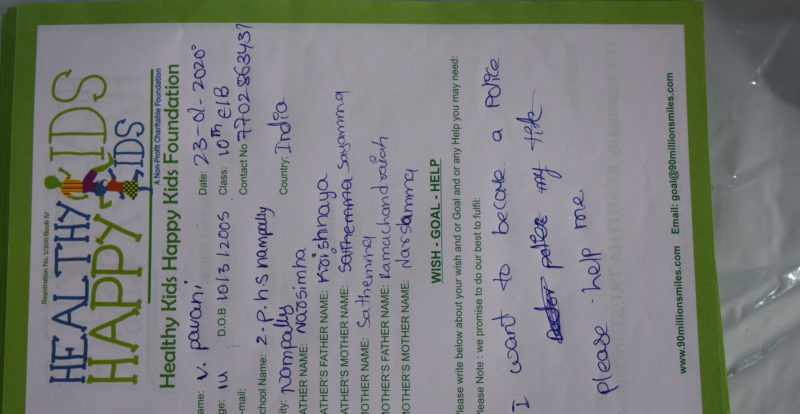 Registration No. 5/2011/Book IV
HEALTHY KIDS
HAPPY KIDS
A Non-Profit Charitable Foundation
Healthy Kids Happy Kids Foundation
ame: V. pavani Date: 23-01-2020
ge: 14 D.O.B 10/3/2005 Class: 10th E/B
-mail: Contact No 7702863431
chool Name: Z.P.H.S nampally
ity: Nampally Country: India
ATHER NAME: Narsimha
ATHER'S FATHER NAME: Krishnaya
ATHER'S MOTHER NAME: Sathemma Sayamma
OTHER NAME: Sathemma
OTHER'S FATHER NAME: Ramachandraiah
OTHER'S MOTHER NAME: Narsamma
WISH - GOAL - HELP
lease write below about your wish and or Goal and or any Help you may need:
lease Note : we promise to do our best to fulfil:
I want to become a police
police my
please help me
www.90millionsmiles.com Email: goal@90millionsmiles.com